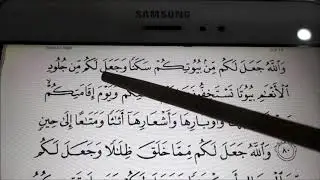 SAMSUNG
وَاللَّهُ جَعَلَ لَكُم مِّنۢ بُيُوتِكُمْ سَكَنًا وَجَعَلَ لَكُم مِّن جُلُودِ
الْأَنْعَٰمِ بُيُوتًا تَسْتَخِفُّونَهَا وَيَوْمَ إِقَامَتِكُمْ
وَأَوْبَارِهَا وَأَشْعَارِهَا أَثَٰثًا وَمَتَٰعًا إِلَىٰ حِينٍ
٨٠ وَاللَّهُ جَعَلَ لَكُم مِّمَّا خَلَقَ ظِلَٰلًا وَجَعَلَ لَكُم